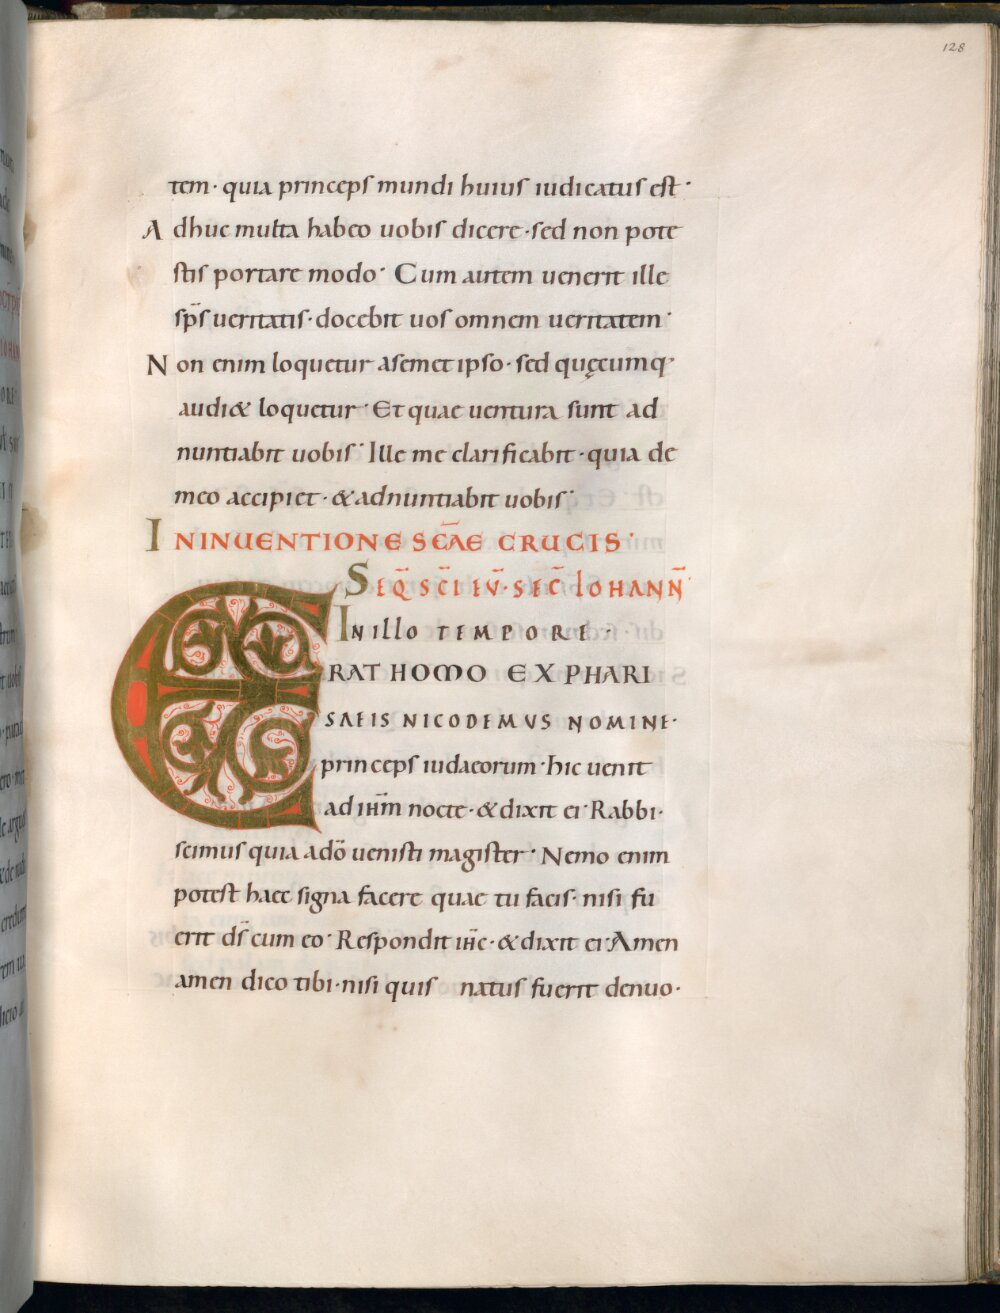 128
tem· quia princeps mundi huius iudicatus est·
Adhuc multa habeo uobis dicere·sed non pote
stis portare modo· Cum autem uenerit ille
sp̄s ueritatis·docebit uos omnem ueritatem·
Non enim loquetur asemet ipso·sed quęcumq·
audi& loquetur· Et quae uentura sunt ad
nuntiabit uobis· Ille me clarificabit·quia de
meo accipiet·&adnuntiabit uobis·
IN INUENTIONE SC̄AE CRUCIS·
SEQ̄ SC̄I EV̄·SEC̄ IOHANN̄
IN ILLO TEMPORE·
ERAT HOMO EX PHARI
SAEIS NICODEMVS NOMINE·
princeps iudaeorum·hic uenit
ad ih̄m nocte·&dixit ei·Rabbi·
scimus quia adō uenisti magister· Nemo enim
potest haec signa facere quae tu facis·nisi fu
erit d̄s cum eo· Respondit ih̄c·&dixit ei·Amen
amen dico tibi·nisi quis natus fuerit denuo·